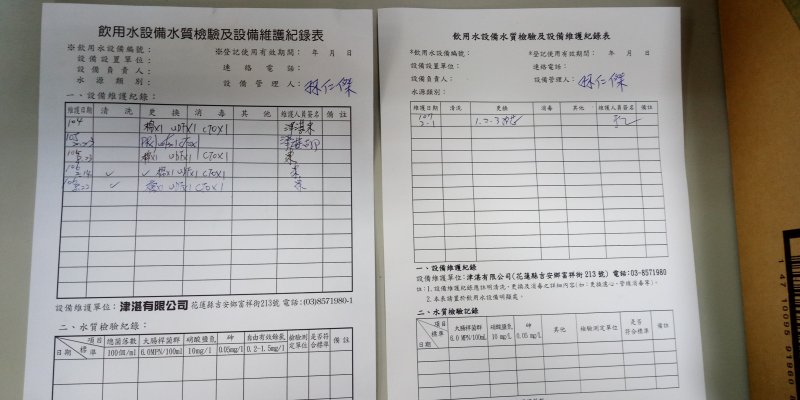 飲用水設備水質檢驗及設備維護紀錄表
※飲用水設備編號： ※登記使用有效期間： 年 月 日
設備設置單位： 連絡電話：
設備負責人： 設備管理人：林仁傑
水源類別：
一、設備維護紀錄：
維護日期 清洗 更換 消毒 其他 維護人員簽名 備註
104 UDFX1 CTOX1
UDFX1 CTOX1
✓ ✓ UDFX1 CTOX1
✓ UDFX1 CTOX1
設備維護單位：津湛有限公司 花蓮縣吉安鄉富祥街213號 電話:(03)8571980-1
二、水質檢驗紀錄：
項目 標準 日期 總菌落數 100個/ml 大腸桿菌群 6.0MPN/100ml 硝酸鹽氮 10mg/l 砷 0.05mg/l 自由有效餘氯 0.2~1.5mg/l 檢驗測定單位 是否符合標準 備註
飲用水設備水質檢驗及設備維護紀錄表
*飲用水設備編號： *登記使用有效期間： 年 月 日
設備設置單位： 連絡電話：
設備負責人： 設備管理人：林仁傑
水源類別：
維護日期 清洗 更換 消毒 其他 維護人員簽名 備註
107 2-1 1.2.3
一、設備維護紀錄
設備維護單位:津湛有限公司(花蓮縣吉安鄉富祥街 213 號) 電話:03-8571980
註:1.設備維護紀錄應註明清洗、更換及消毒之詳細內容(如:更換濾心、管線消毒等)。
2.本表請置於飲用水設備明顯處。
二、水質檢驗記錄
項目 標準 日期 大腸桿菌群 6.0 MPN/100mL 硝酸鹽氮 10 mg/L 砷 0.05 mg/L 其他 檢驗測定單位 是否符合標準 備註
147 10395 91960